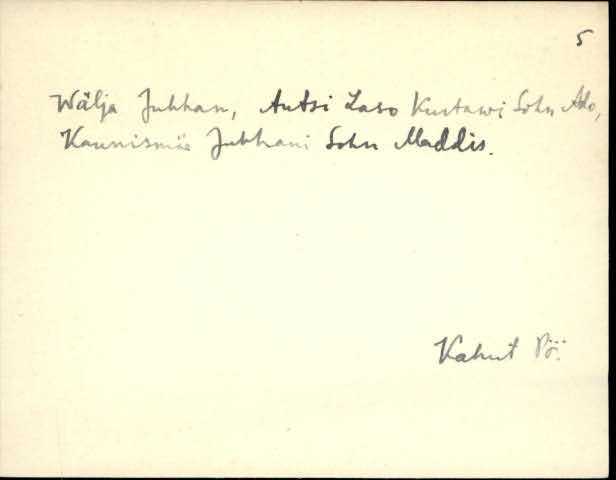 5
Wälja Juhhan, Autsi Laso Kustawi Sohn Ado,
Kaunismäe Juhhani Sohn Maddis.
Kahut Pö.